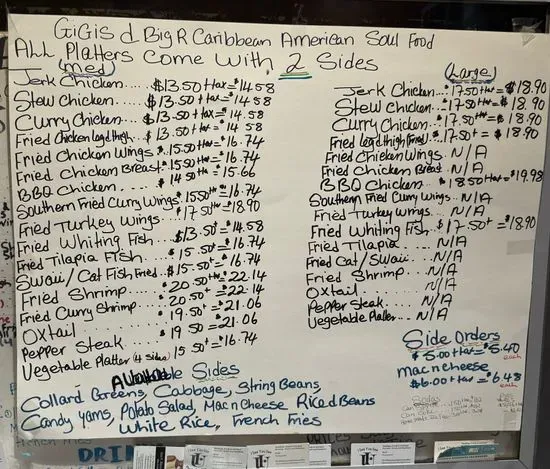 GiGis d Big R Caribbean American Soul Food
ALL Platters Come With 2 Sides
(med)
Jerk Chicken.... $13.50+tax=$14.58
Stew Chicken.... $13.50+tax=$14.58
Curry Chicken.... $13.50+tax=$14.58
Fried Chicken leg d thigh. $13.50+tax=$14.58
Fried Chicken Wings. $15.50+tax=$16.74
Fried Chicken Breast. $15.50+tax=$16.74
BBQ Chicken.... $14.50+tax=$15.66
Southern Fried Curry Wings. $15.50+tax=$16.74
Fried Turkey Wings.. $17.50+tax=$18.90
Fried Whiting Fish. $13.50+=$14.58
Fried Tilapia Fish.... $15.50+=$16.74
Swaii/Cat Fish Fried.. $15.50+=$16.74
Fried Shrimp..... $20.50+tax=22.14
Fried Curry Shrimp.. $20.50+=$22.14
Oxtail....... $19.50+=$21.06
Pepper Steak..... $19.50=$21.06
Vegetable Platter (4 Sides) 15.50+=$16.74
(Large)
Jerk Chicken.. $17.50+tax=$18.90
Stew Chicken.. $17.50+tax=$18.90
Curry Chicken.. $17.50+tax=$18.90
Fried leg d thigh (Fried). $17.50+=$18.90
Fried Chicken Wings.. N/A
Fried Chicken Breast.. N/A
BBQ Chicken.. $18.50+tax=$19.98
Southern Fried Curry Wings.. N/A
Fried Turkey Wings.. N/A
Fried Whiting Fish. $17.50+=$18.90
Fried Tilapia.... N/A
Fried Cat/Swaii.... N/A
Fried Shrimp.... N/A
Oxtail...... N/A
Pepper Steak.... N/A
Vegetable Platter... N/A
Side Orders
$5.00+tax=$5.40
each
mac n cheese
$6.00+tax=$6.48
each
Sodas
Available Sides
Collard Greens, Cabbage, String Beans,
Candy Yams, Potato Salad, Mac n Cheese Rice d Beans
White Rice, French Fries
DRIN